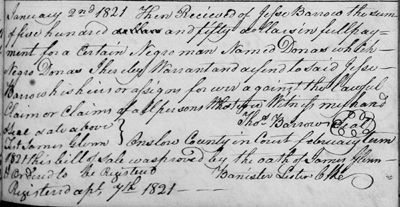 January 22nd 1821 Then Recieved of Jesse Barrow the sum
of five hundred dollars and fifty dollars in full pay-
ment for a Certain Negro man Named Donas which
Negro Donas I hereby Warrant and defend to said Jesse
Barrow his heirs or assigns for ever against the Lawful
Claim or Claims of all persons Whatsoever Witness my hand
Seal & date above Thos Barrow Seal
Test James Glenn } Onslow County in Court February term
1821 this bill of Sale was proved by the oath of James Glenn
Ordered to be Registered Banister Clk
Registered apl 7th 1821